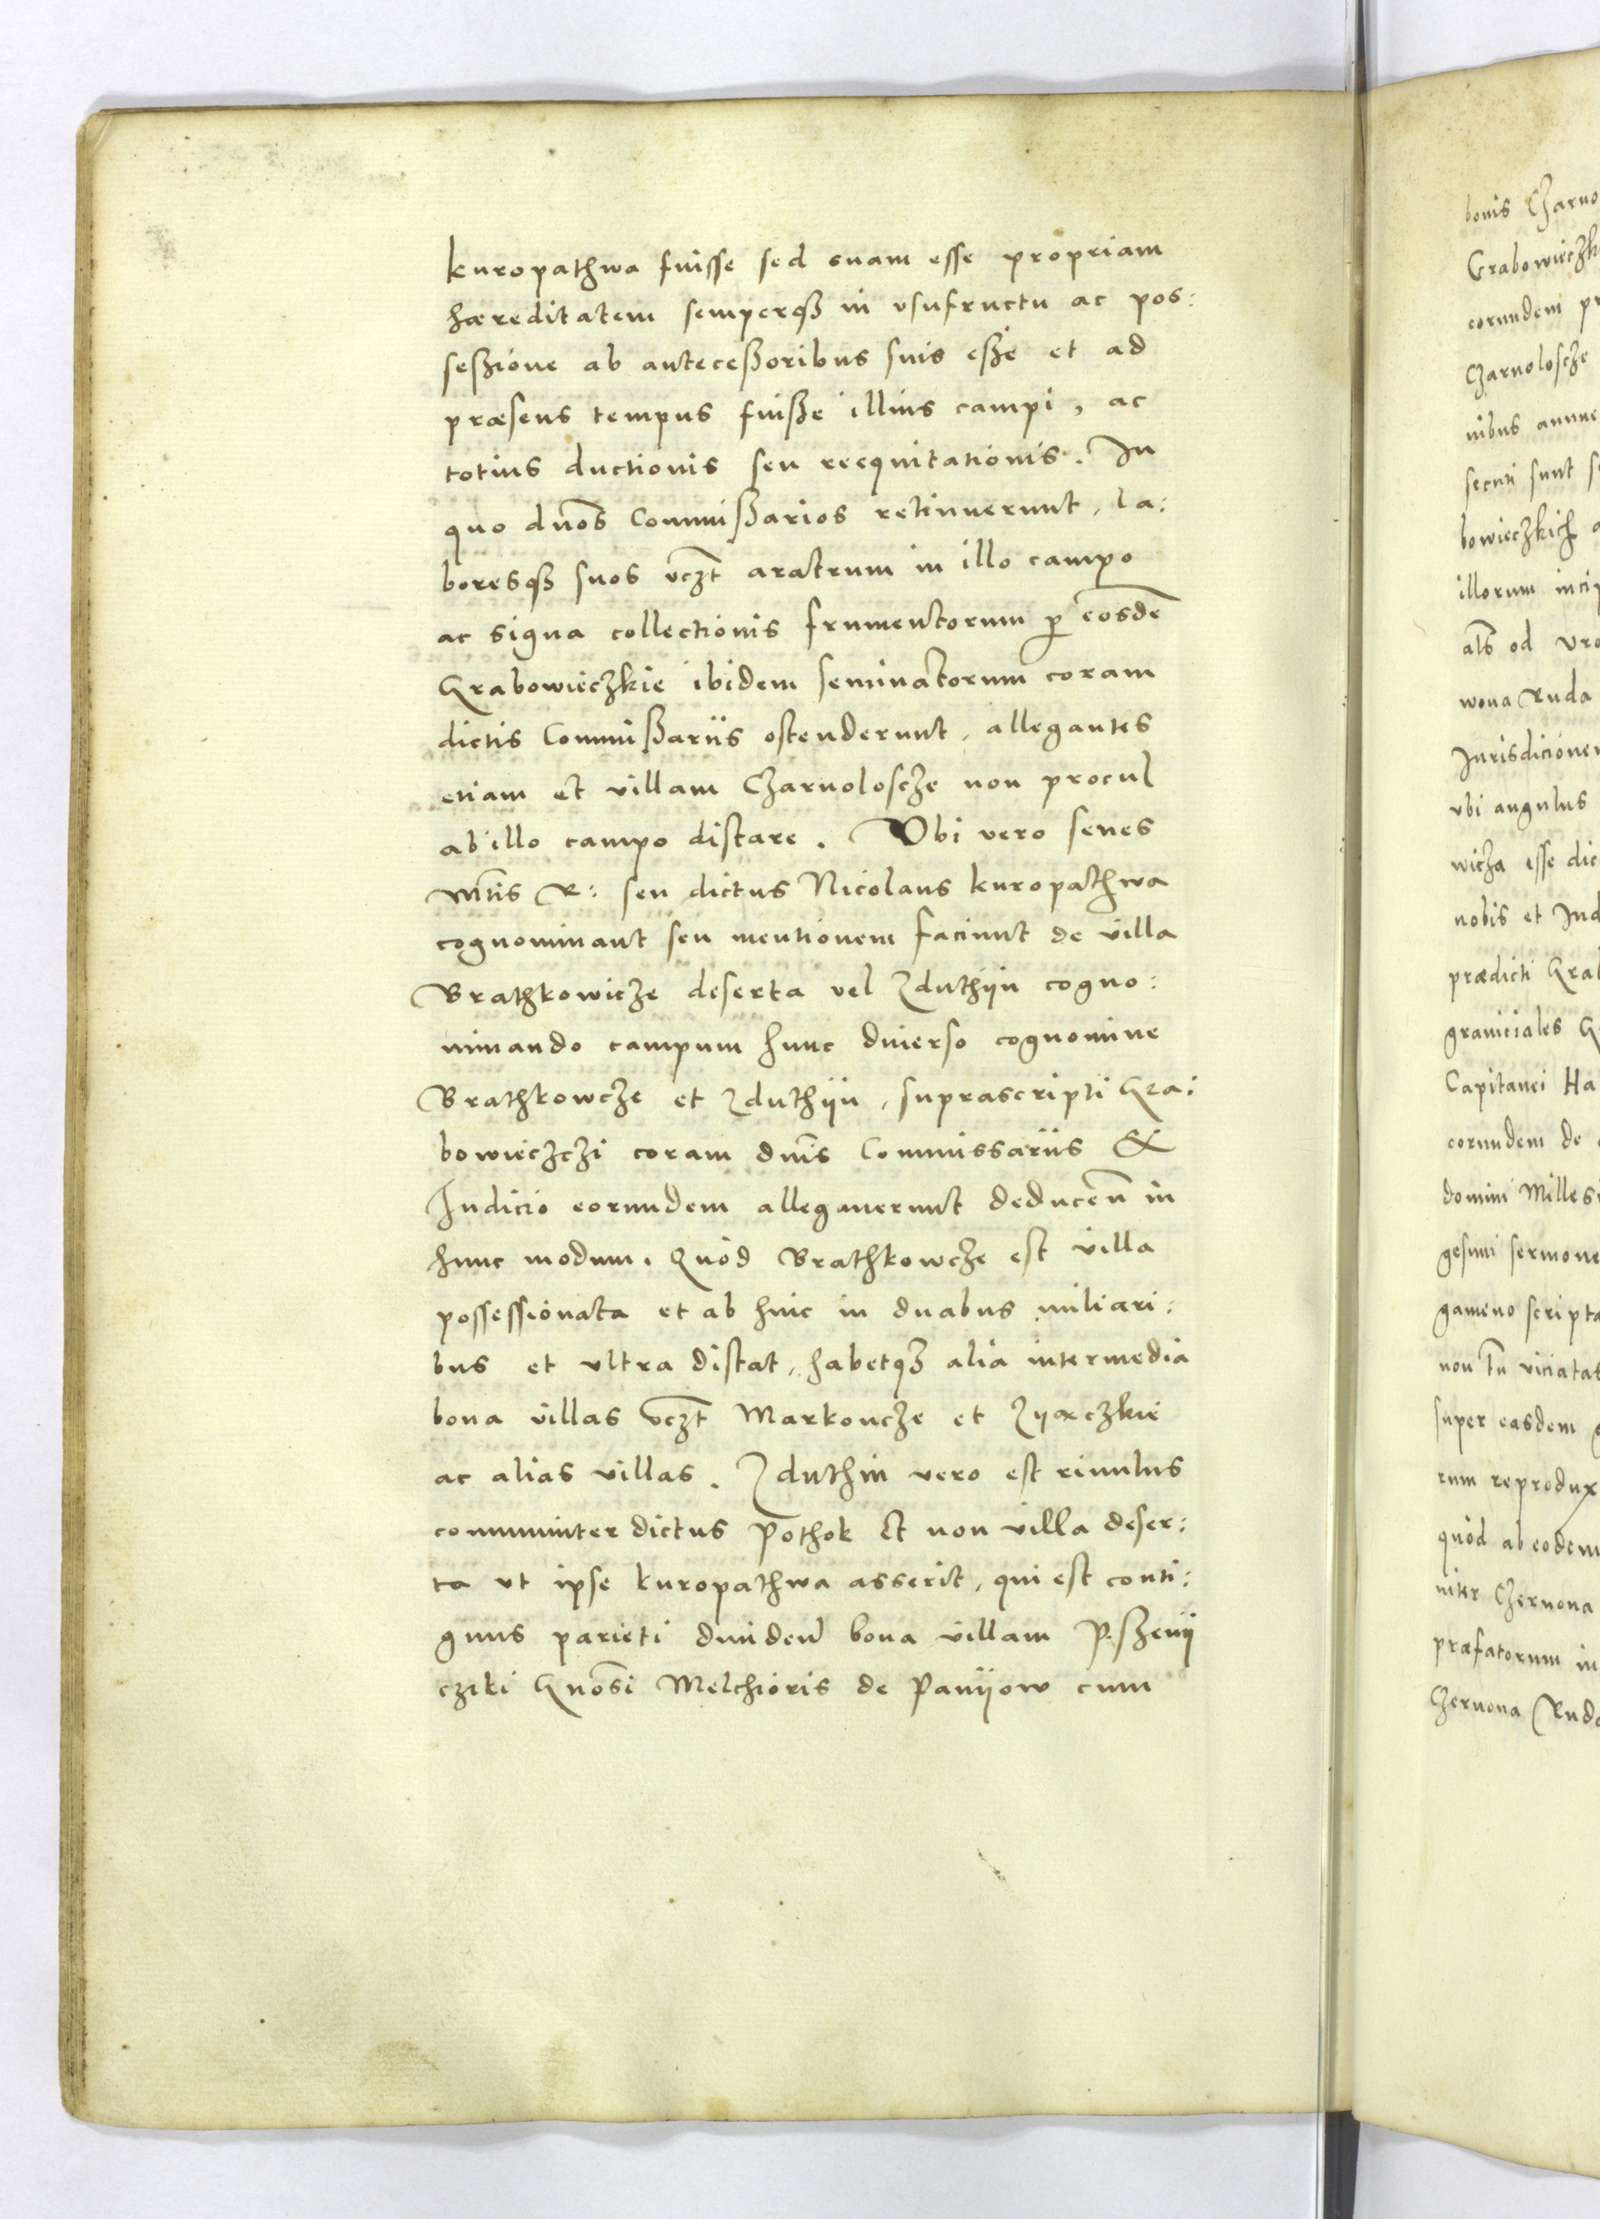 kuropathwa fuisse sed suam esse propriam
hæreditatem semperqȝ in vsufructu ac pos:
seßione ab anteceßoribus suis eße et ad
præsens tempus fuiße illius campi, ac
totius ductionis seu reequitationis. In
quo dnos Commißarios retinuerunt, la:
boresqȝ suos vczt aratrum in illo campo
ac signa collectionis frumentorum p eosde
Grabowieczkie ibidem seminatorum coram
dictis Commißariis ostenderunt, allegantes
etiam et villam Czarnolosczе non procul
ab illo campo distare. Vbi vero senes
Mtis R: seu dictus Nicolaus kuropathwa
cognominant seu mentionem faciunt de villa
Brathkowicze deserta vel Zduthyn cogno:
minando campum hunc diuerso cognomine
Brathkowcze et Zduthyn, suprascripti Gra:
bowieczczi coram dnis Commissariis &
Iudicio eorundem allegauerunt deducen in
hunc modum. Quòd Brathkowcze est villa
possessionata et ab huic in duabus miliari:
bus et vltra distat, habetqȝ alia intermedia
bona villas vczt Markoucze et Zyaczkie
ac alias villas. Zduthin vero est riuulus
communiter dictus Pothok et non villa deser:
ta vt ipse kuropathwa asserit, qui est conti:
guus parieti diuiden bona villam P.szeny
cziki Gnosi Melchioris de Panyow cum
bonis Czarno
Grabowieczk
eorundem pr
Czarnolosczе
nibus annue
secuti sunt s
bowieczkich a
illorum inci
als od vro
wona Ruda
Iurisdicionem
vbi angulus
wicza esse dic
nobis et Ind
prædicti Gra
graniciales G
Capitanei Ha
eorundem de
domini Milles
gesimi sermone
gameno scripta
non tn viciatas
super easdem
rum reprodux
quòd ab eodem
niter Czerwona
præfatorum in
Czerwona Ruda